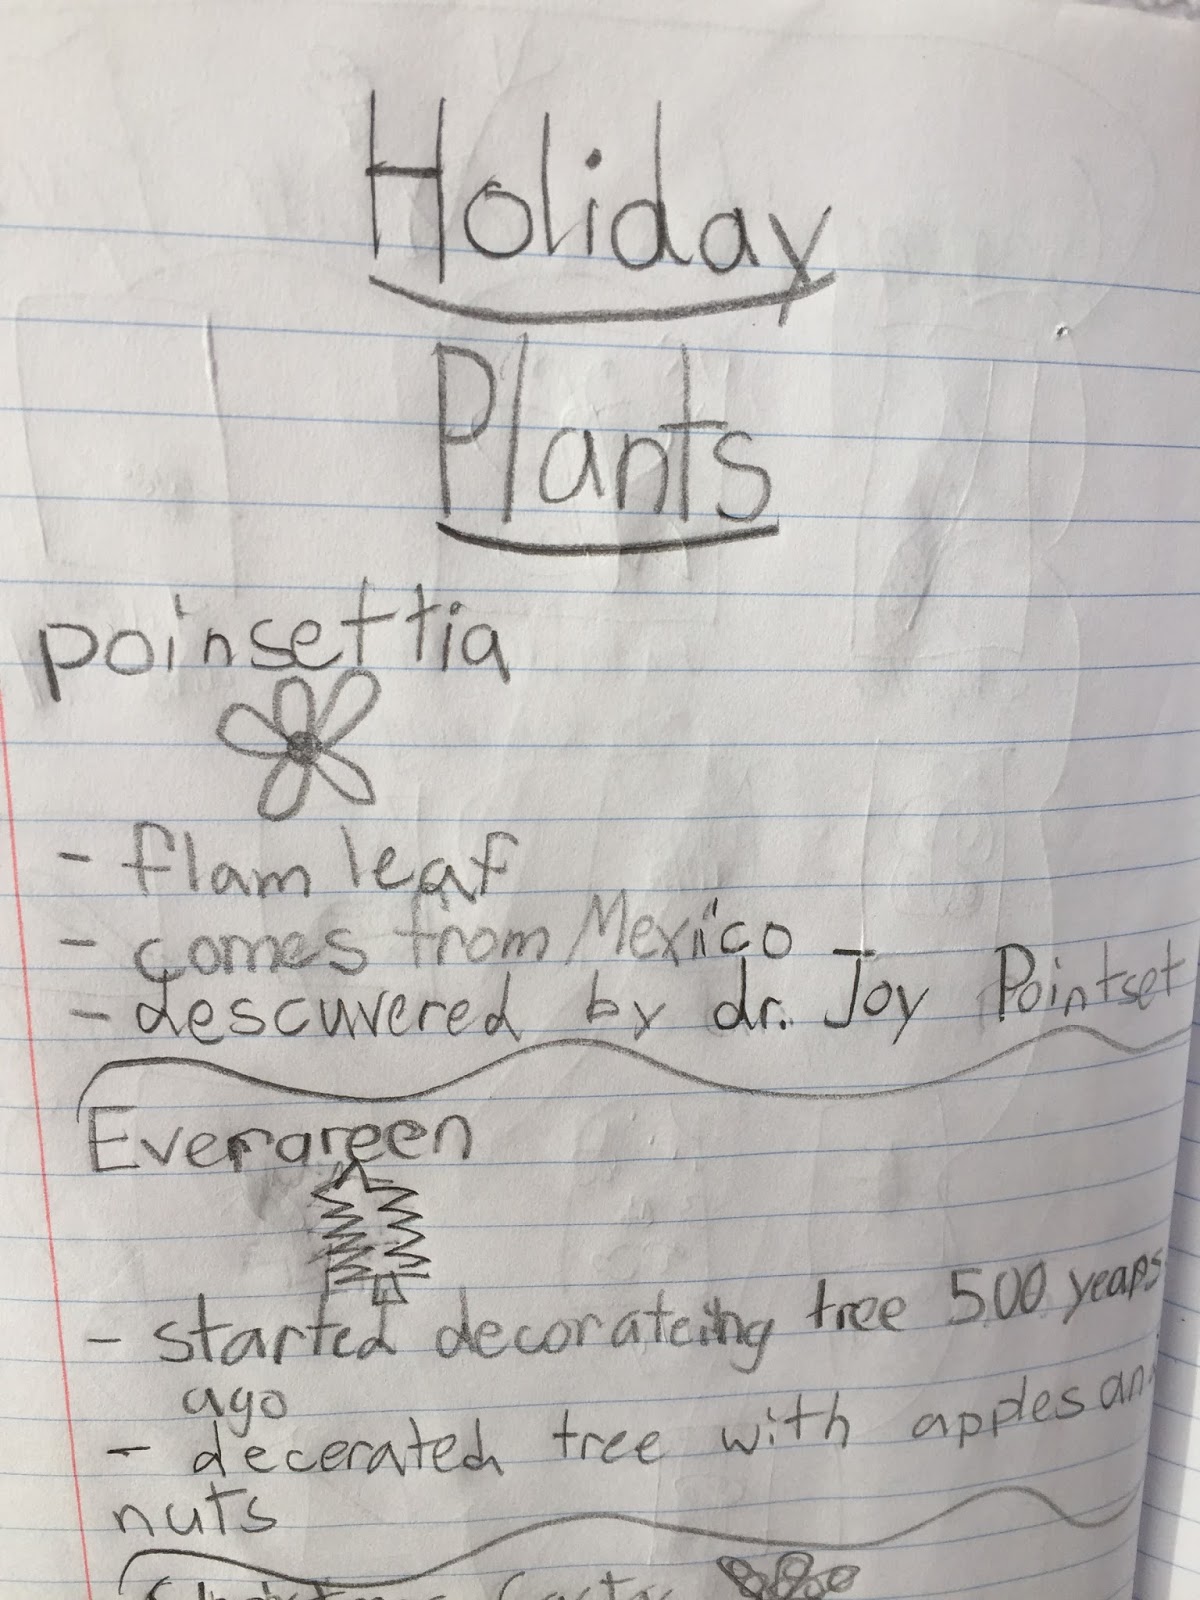 Holiday
Plants
poinsettia
- flam leaf
- comes from Mexiico
- descuvered by dr. Joy Pointset
Evergreen
- started decorateing tree 500 years
ago
- decerated tree with apples an
nuts